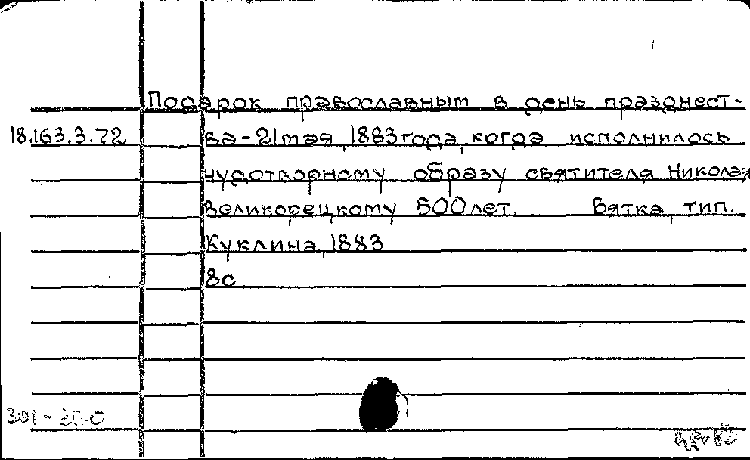 Подарок православным в день празднест-
18.163.3.72 ва-21 мая 1883 года, когда исполнилось
чудотворному образу святителя Николая
Великорецкому 500 лет. Вятка, тип.
Куклина, 1883
8с.